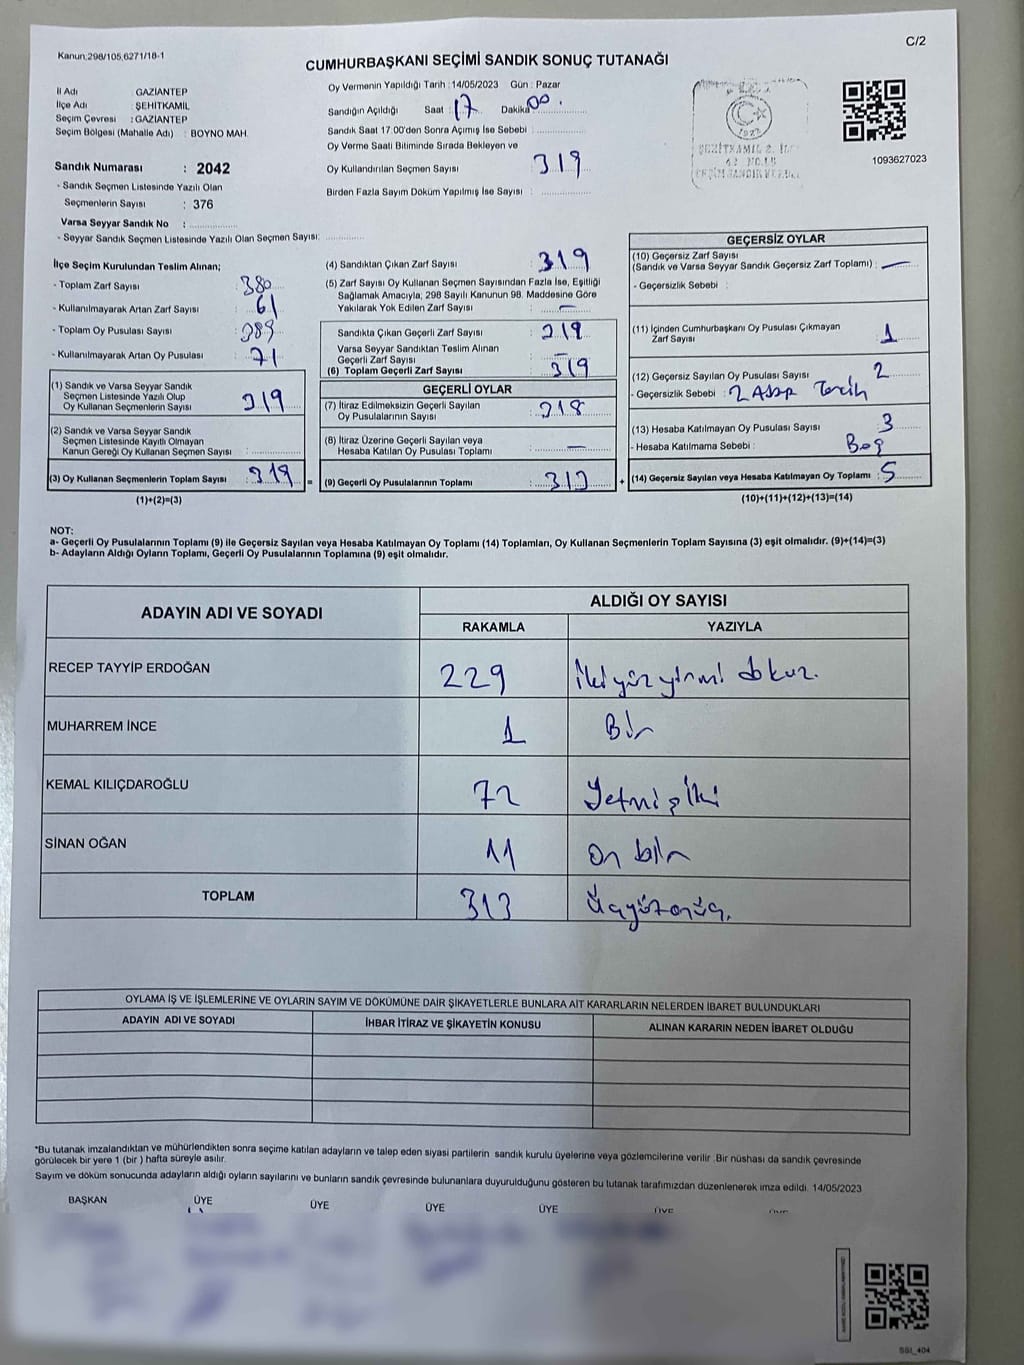 Kanun,298/105,6271/18-1
C/2
CUMHURBAŞKANI SEÇİMİ SANDIK SONUÇ TUTANAĞI
İl Adı : GAZİANTEP
İlçe Adı : ŞEHİTKAMİL
Seçim Çevresi : GAZİANTEP
Seçim Bölgesi (Mahalle Adı) : BOYNO MAH.
Sandık Numarası : 2042
- Sandık Seçmen Listesinde Yazılı Olan
Seçmenlerin Sayısı : 376
Varsa Seyyar Sandık No :
- Seyyar Sandık Seçmen Listesinde Yazılı Olan Seçmen Sayısı:
Oy Vermenin Yapıldığı Tarih : 14/05/2023 Gün : Pazar
Sandığın Açıldığı Saat : 17 Dakika 00.
Sandık Saat 17:00'den Sonra Açımış İse Sebebi :
Oy Verme Saati Bitiminde Sırada Bekleyen ve
Oy Kullandırılan Seçmen Sayısı : 319
Birden Fazla Sayım Döküm Yapılmış İse Sayısı :
1923
1093627023
İlçe Seçim Kurulundan Teslim Alınan;
- Toplam Zarf Sayısı : 380
- Kullanılmayarak Artan Zarf Sayısı : 61
- Toplam Oy Pusulası Sayısı : 389
- Kullanılmayarak Artan Oy Pusulası : 71
(1) Sandık ve Varsa Seyyar Sandık
Seçmen Listesinde Yazılı Olup
Oy Kullanan Seçmenlerin Sayısı : 319
(2) Sandık ve Varsa Seyyar Sandık
Seçmen Listesinde Kayıtlı Olmayan
Kanun Gereği Oy Kullanan Seçmen Sayısı :
(3) Oy Kullanan Seçmenlerin Toplam Sayısı : 319 =
(1)+(2)=(3)
(4) Sandıktan Çıkan Zarf Sayısı : 319
(5) Zarf Sayısı Oy Kullanan Seçmen Sayısından Fazla İse, Eşitliği
Sağlamak Amacıyla; 298 Sayılı Kanunun 98. Maddesine Göre
Yakılarak Yok Edilen Zarf Sayısı : —
Sandıkta Çıkan Geçerli Zarf Sayısı : 319
Varsa Seyyar Sandıktan Teslim Alınan
Geçerli Zarf Sayısı : —
(6) Toplam Geçerli Zarf Sayısı : 319
GEÇERLİ OYLAR
(7) İtiraz Edilmeksizin Geçerli Sayılan
Oy Pusulalarının Sayısı : 318
(8) İtiraz Üzerine Geçerli Sayılan veya
Hesaba Katılan Oy Pusulası Toplamı : —
(9) Geçerli Oy Pusulalarının Toplamı : 313 +
GEÇERSİZ OYLAR
(10) Geçersiz Zarf Sayısı
(Sandık ve Varsa Seyyar Sandık Geçersiz Zarf Toplamı) : —
- Geçersizlik Sebebi :
(11) İçinden Cumhurbaşkanı Oy Pusulası Çıkmayan
Zarf Sayısı : 1
(12) Geçersiz Sayılan Oy Pusulası Sayısı : 2
- Geçersizlik Sebebi : 2 Tercih
(13) Hesaba Katılmayan Oy Pusulası Sayısı : 3
- Hesaba Katılmama Sebebi : Boş
(14) Geçersiz Sayılan veya Hesaba Katılmayan Oy Toplamı : 5
(10)+(11)+(12)+(13)=(14)
NOT:
a- Geçerli Oy Pusulalarının Toplamı (9) ile Geçersiz Sayılan veya Hesaba Katılmayan Oy Toplamı (14) Toplamları, Oy Kullanan Seçmenlerin Toplam Sayısına (3) eşit olmalıdır. (9)+(14)=(3)
b- Adayların Aldığı Oyların Toplamı, Geçerli Oy Pusulalarının Toplamına (9) eşit olmalıdır.
ADAYIN ADI VE SOYADI
ALDIĞI OY SAYISI
RAKAMLA YAZIYLA
RECEP TAYYİP ERDOĞAN 229 İkiyüzyirmi dokuz.
MUHARREM İNCE 1 Bir
KEMAL KILIÇDAROĞLU 72 Yetmişiki
SİNAN OĞAN 11 On bir
TOPLAM 313 Üçyüzonüç.
OYLAMA İŞ VE İŞLEMLERİNE VE OYLARIN SAYIM VE DÖKÜMÜNE DAİR ŞİKAYETLERLE BUNLARA AİT KARARLARIN NELERDEN İBARET BULUNDUKLARI
ADAYIN ADI VE SOYADI İHBAR İTİRAZ VE ŞİKAYETİN KONUSU ALINAN KARARIN NEDEN İBARET OLDUĞU
*Bu tutanak imzalandıktan ve mühürlendikten sonra seçime katılan adayların ve talep eden siyasi partilerin sandık kurulu üyelerine veya gözlemcilerine verilir .Bir nüshası da sandık çevresinde
görülecek bir yere 1 (bir ) hafta süreyle asılır.
Sayım ve döküm sonucunda adayların aldığı oyların sayılarını ve bunların sandık çevresinde bulunanlara duyurulduğunu gösteren bu tutanak tarafımızdan düzenlenerek imza edildi. 14/05/2023
BAŞKAN ÜYE ÜYE ÜYE ÜYE ÜYE ÜYE
SSI_404